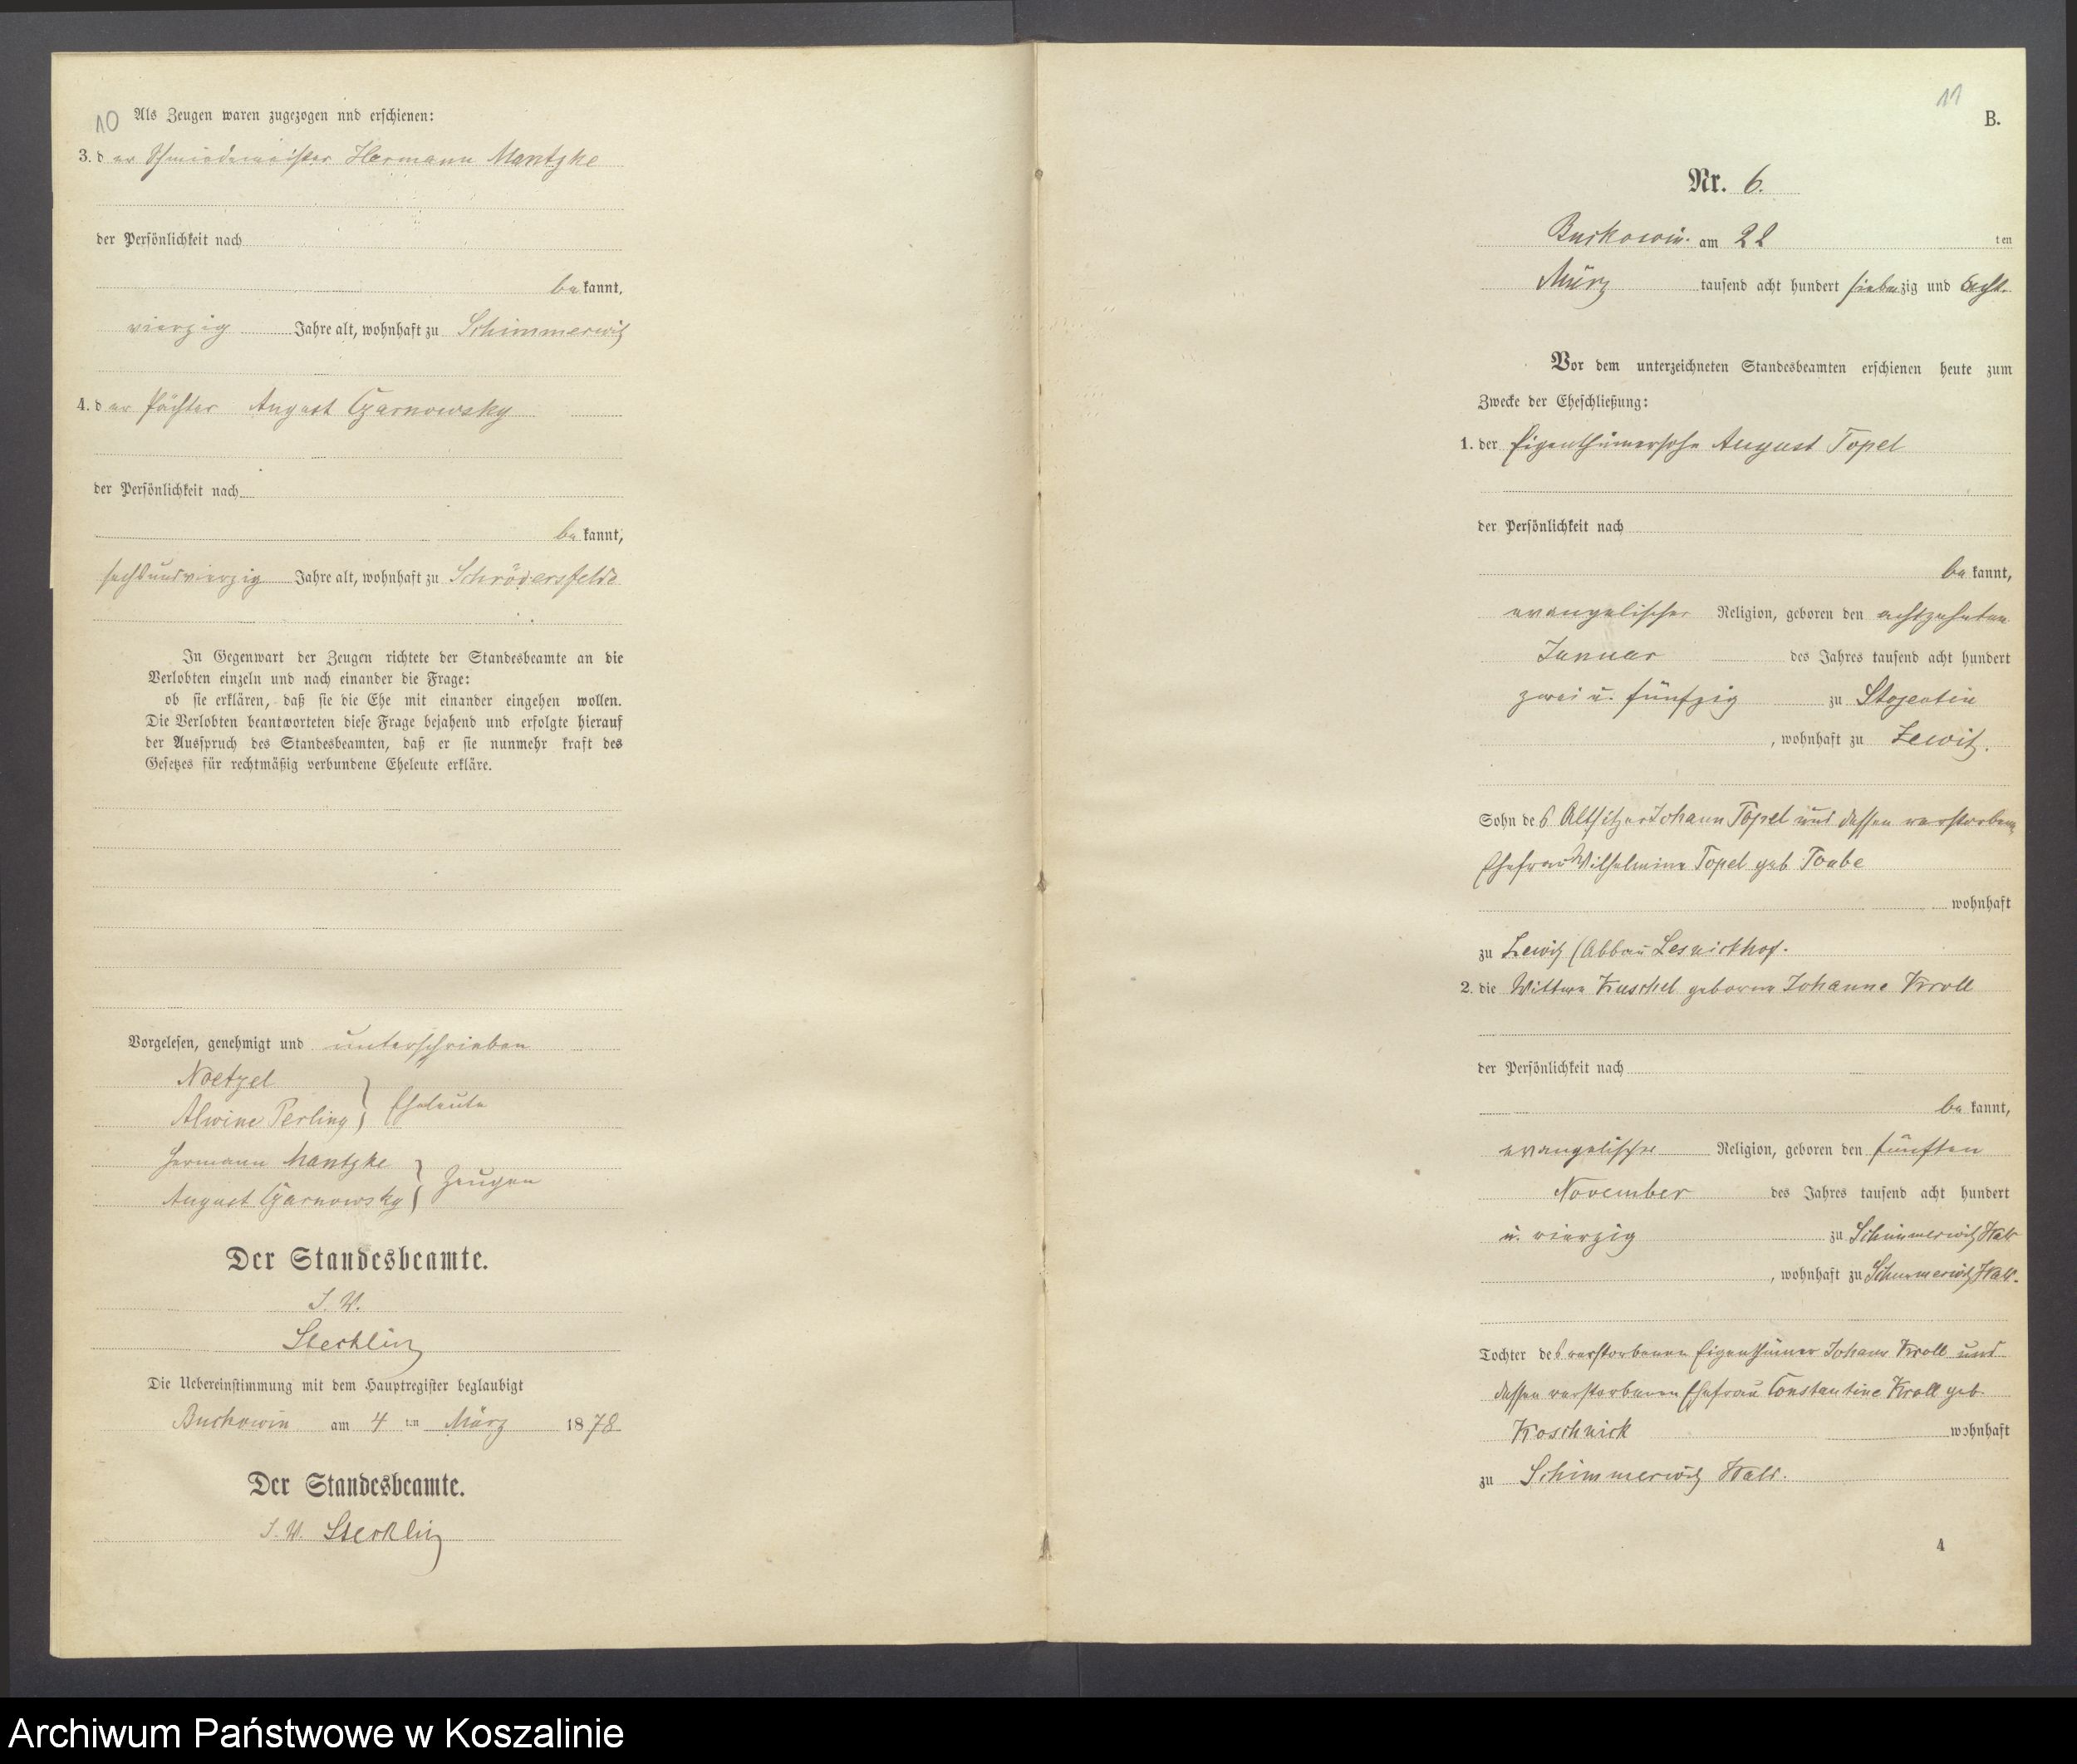 10
Als Zeugen waren zugezogen und erschienen:
3. der Schmiedemeister Hermann Mantzke
der Persönlichkeit nach
bekannt,
vierzig Jahre alt, wohnhaft zu Schimmerwitz
4. der Pächter August Czarnowsky
der Persönlichkeit nach
bekannt,
sechsundvierzig Jahre alt, wohnhaft zu Schrödersfelde
In Gegenwart der Zeugen richtete der Standesbeamte an die
Verlobten einzeln und nach einander die Frage:
ob sie erklären, daß sie die Ehe mit einander eingehen wollen.
Die Verlobten beantworteten diese Frage bejahend und erfolgte hierauf
der Ausspruch des Standesbeamten, daß er sie nunmehr kraft des
Gesetzes für rechtmäßig verbundene Eheleute erkläre.
Vorgelesen, genehmigt und unterschrieben
Noetzel
Alwine Perling } Eheleute
Hermann Mantzke
August Czarnowsky } Zeugen
Der Standesbeamte.
I. V.
Stecklin
Die Uebereinstimmung mit dem Hauptregister beglaubigt
Buckowin am 4 ten März 1878
Der Standesbeamte.
I. V. Stecklin
11
B.
Nr. 6.
Buckowin. am 22 ten
März tausend acht hundert siebenzig und acht.
Vor dem unterzeichneten Standesbeamten erschienen heute zum
Zwecke der Eheschließung:
1. der Eigenthümersohn August Topel
der Persönlichkeit nach
bekannt,
evangelischer Religion, geboren den achtzehnten
Januar des Jahres tausend acht hundert
zwei u. fünfzig zu Stojentin
, wohnhaft zu Zewitz.
Sohn des Altsitzer Johann Topel und dessen verstorbene
Ehefrau Wilhelmine Topel geb Taube
wohnhaft
zu Zewitz (Abbau Lesnickhof.
2. die Wittwe Kuschel geborene Johanne Kroll
der Persönlichkeit nach
bekannt,
evangelischer Religion, geboren den fünften
November des Jahres tausend acht hundert
u. vierzig zu Schimmerwitz Wald
, wohnhaft zu Schimmerwitz Wald.
Tochter des verstorbenen Eigenthümer Johann Kroll und
dessen verstorbenen Ehefrau Constantine Kroll geb.
Koschnick wohnhaft
zu Schimmerwitz Wald.
4
Archiwum Państwowe w Koszalinie